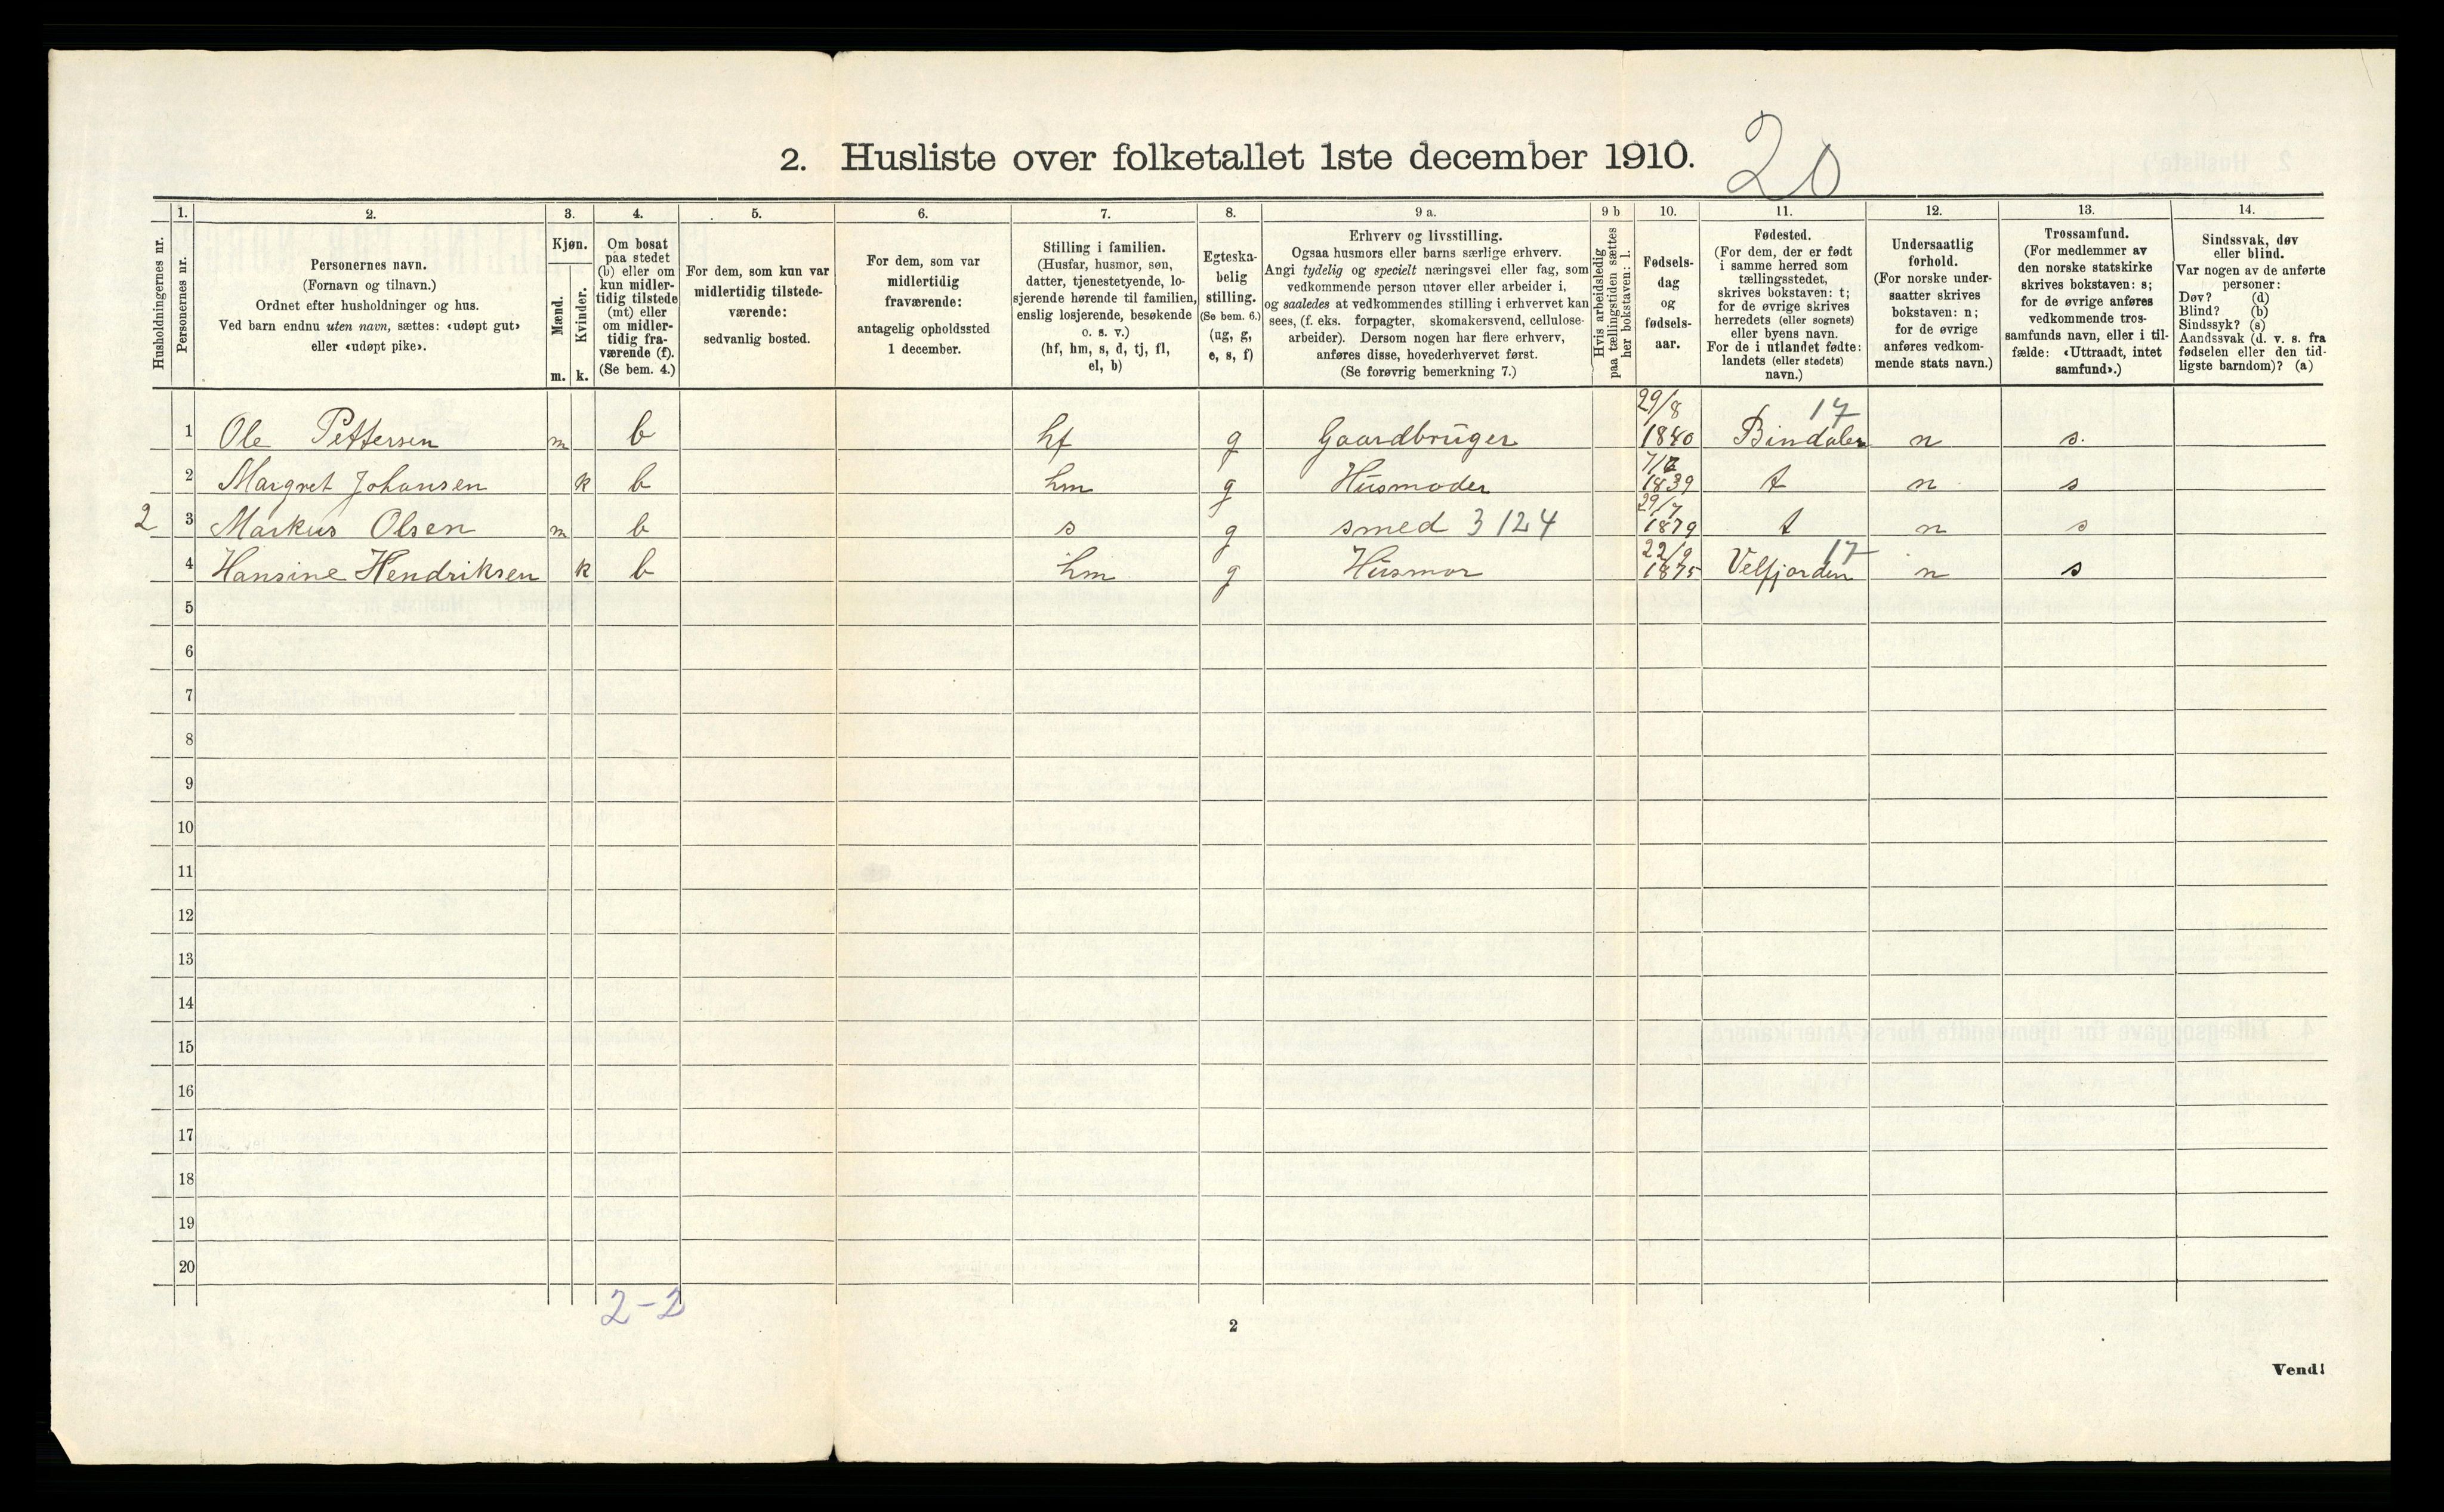 2. Husliste over folketallet 1ste december 1910. 20
Husholdningernes nr.
1. Personernes nr.
2. Personernes navn.
(Fornavn og tilnavn.)
Ordnet efter husholdninger og hus.
Ved barn endnu uten navn, sættes: «udøpt gut»
eller «udøpt pike».
3. Kjøn.
Mænd. Kvinder.
m. k.
4. Om bosat
paa stedet
(b) eller om
kun midler-
tidig tilstede
(mt) eller
om midler-
tidig fra-
værende (f).
(Se bem. 4.)
5. For dem, som kun var
midlertidig tilstede-
værende:
sedvanlig bosted.
6. For dem, som var
midlertidig
fraværende:
antagelig opholdssted
1 december.
7. Stilling i familien.
(Husfar, husmor, søn,
datter, tjenestetyende, lo-
sjerende hørende til familien,
enslig losjerende, besøkende
o. s. v.)
(hf, hm, s, d, tj, fl,
el, b)
8. Egteska-
belig
stilling.
(Se bem. 6.)
(ug, g,
e, s, f)
9 a. Erhverv og livsstilling.
Ogsaa husmors eller barns særlige erhverv.
Angi tydelig og specielt næringsvei eller fag, som
vedkommende person utøver eller arbeider i,
og saaledes at vedkommendes stilling i erhvervet kan
sees, (f. eks. forpagter, skomakersvend, cellulose-
arbeider). Dersom nogen har flere erhverv,
anføres disse, hovederhvervet først.
(Se forøvrig bemerkning 7.)
9 b Hvis arbeidsledig
paa tællingstiden sættes
her bokstaven: l.
10. Fødsels-
dag
og
fødsels-
aar.
11. Fødested.
(For dem, der er født
i samme herred som
tællingsstedet,
skrives bokstaven: t;
for de øvrige skrives
herredets (eller sognets)
eller byens navn.
For de i utlandet fødte:
landets (eller stedets)
navn.)
12. Undersaatlig
forhold.
(For norske under-
saatter skrives
bokstaven: n;
for de øvrige
anføres vedkom-
mende stats navn.)
13. Trossamfund.
(For medlemmer av
den norske statskirke
skrives bokstaven: s;
for de øvrige anføres
vedkommende tros-
samfunds navn, eller i til-
fælde: «Uttraadt, intet
samfund».)
14. Sindssvak, døv
eller blind.
Var nogen av de anførte
personer:
Døv? (d)
Blind? (b)
Sindssyk? (s)
Aandssvak (d. v. s. fra
fødselen eller den tid-
ligste barndom)? (a)
1 Ole Pettersen m b hf g Gaardbruger 29/8 1840 Bindalen 17 n s.
2 Margret Johansen k b hm g Husmoder 1839 t n s
2 3 Markus Olsen m b s g smed 3124 29/7 1879 t n s
4 Hansine Hendriksen k b hm g Husmor 22/9 1875 Velfjorden 17 n s
5
6
7
8
9
10
11
12
13
14
15
16
17
18
19
20
2-2
2
Vend!